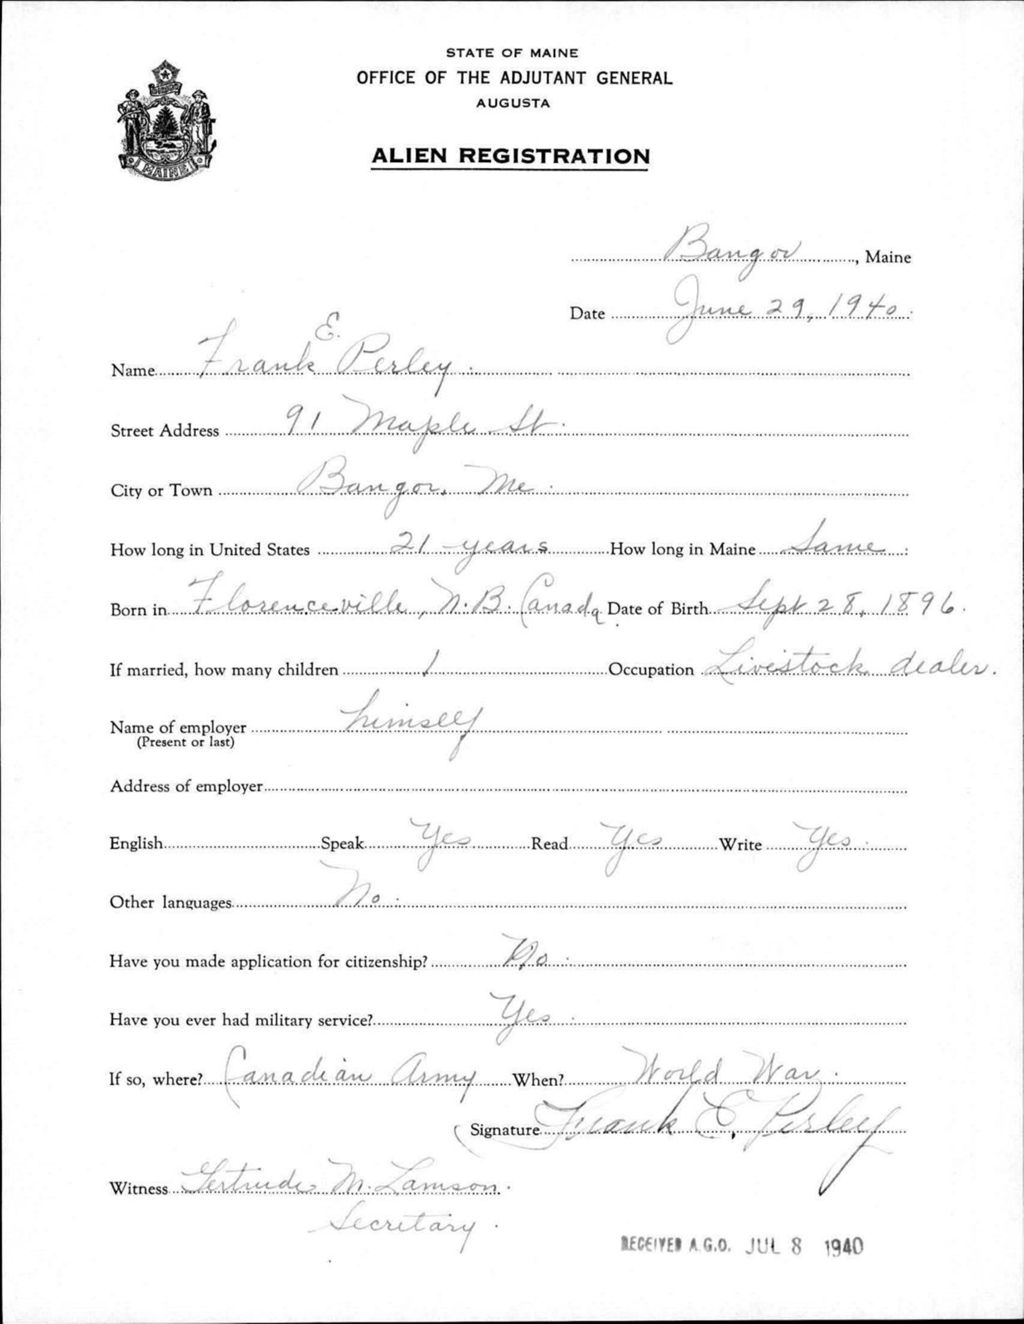 STATE OF MAINE
OFFICE OF THE ADJUTANT GENERAL
AUGUSTA
ALIEN REGISTRATION
MAINE
Bangor, Maine
Date June 29, 1940
Name Frank E. Perley
Street Address 91 Maple St.
City or Town Bangor, Me.
How long in United States 21 years How long in Maine Same
Born in Florenceville, N.B. Canada Date of Birth Sept 28, 1896.
If married, how many children 1 Occupation Livestock dealer.
Name of employer himself
(Present or last)
Address of employer
English Speak Yes Read Yes Write Yes
Other languages No.
Have you made application for citizenship? No.
Have you ever had military service? Yes.
If so, where? Canadian Army When? World War.
Signature Frank E. Perley
Witness Gertrude M. Lamson.
Secretary.
RECEIVED A.G.O. JUL 8 1940